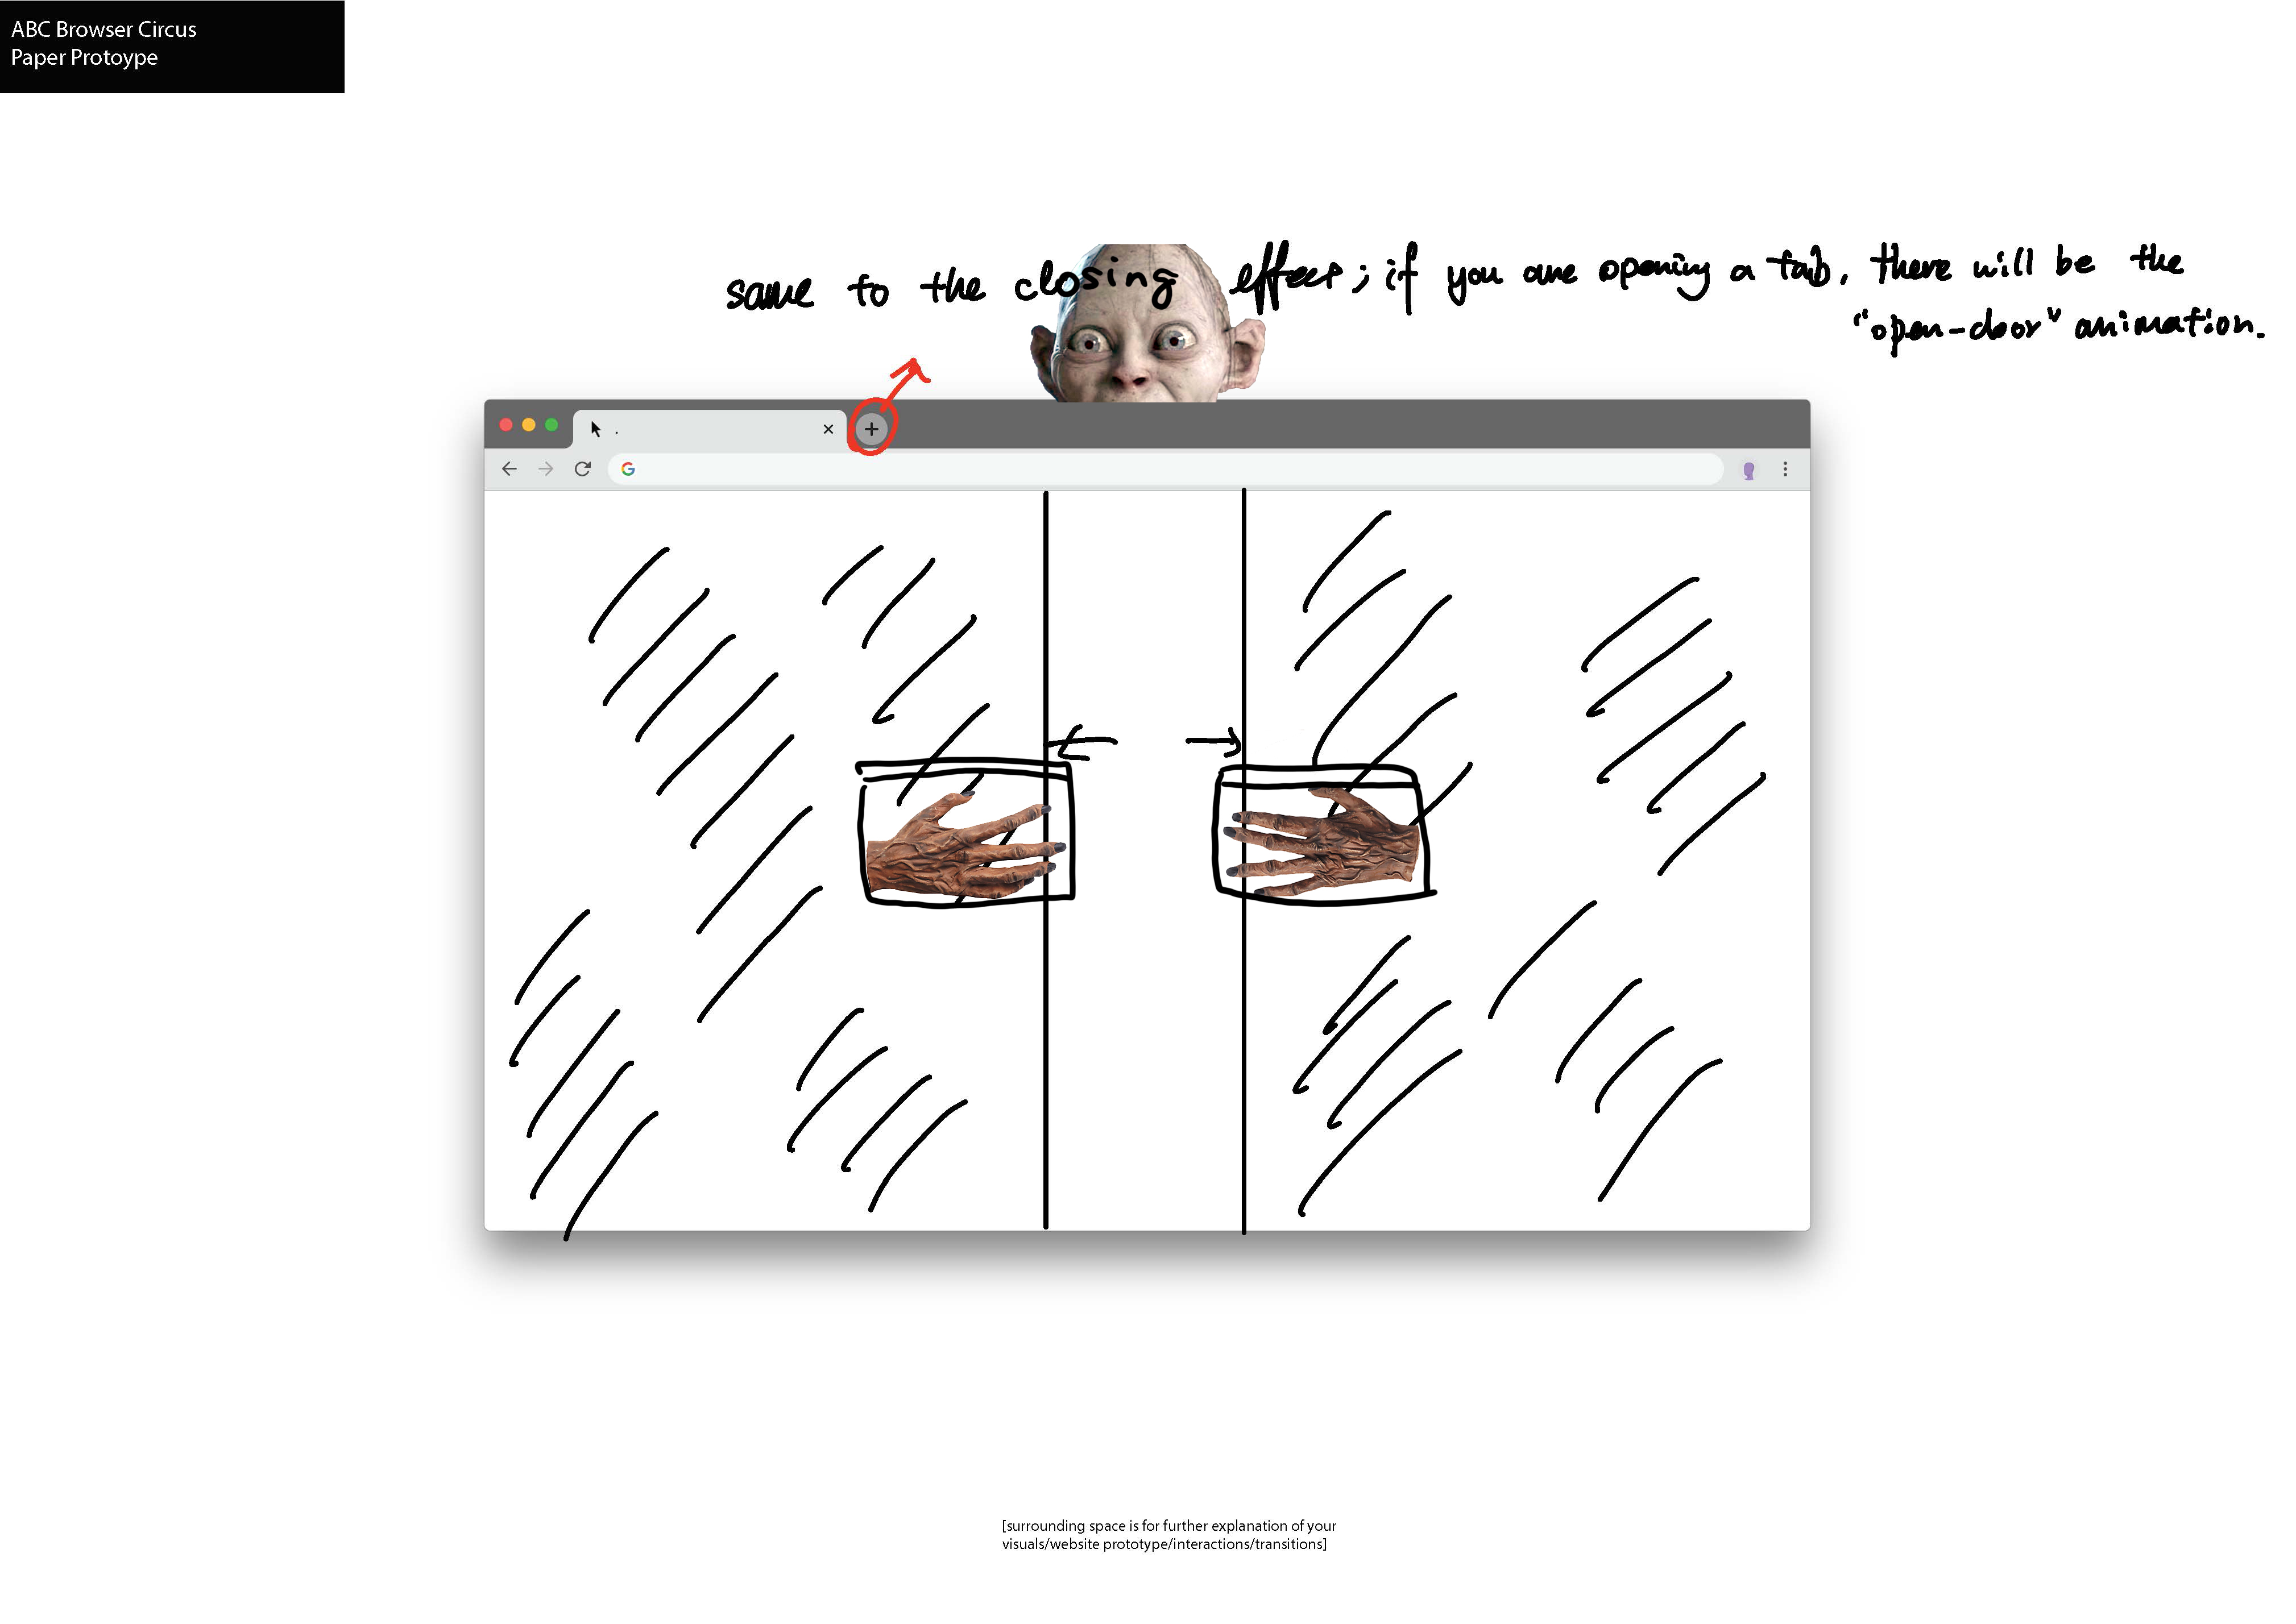 ABC Browser Circus
Paper Protoype
same to the closing effect; if you are opening a tab, there will be the
"open-door" animation.
[surrounding space is for further explanation of your
visuals/website prototype/interactions/transitions]